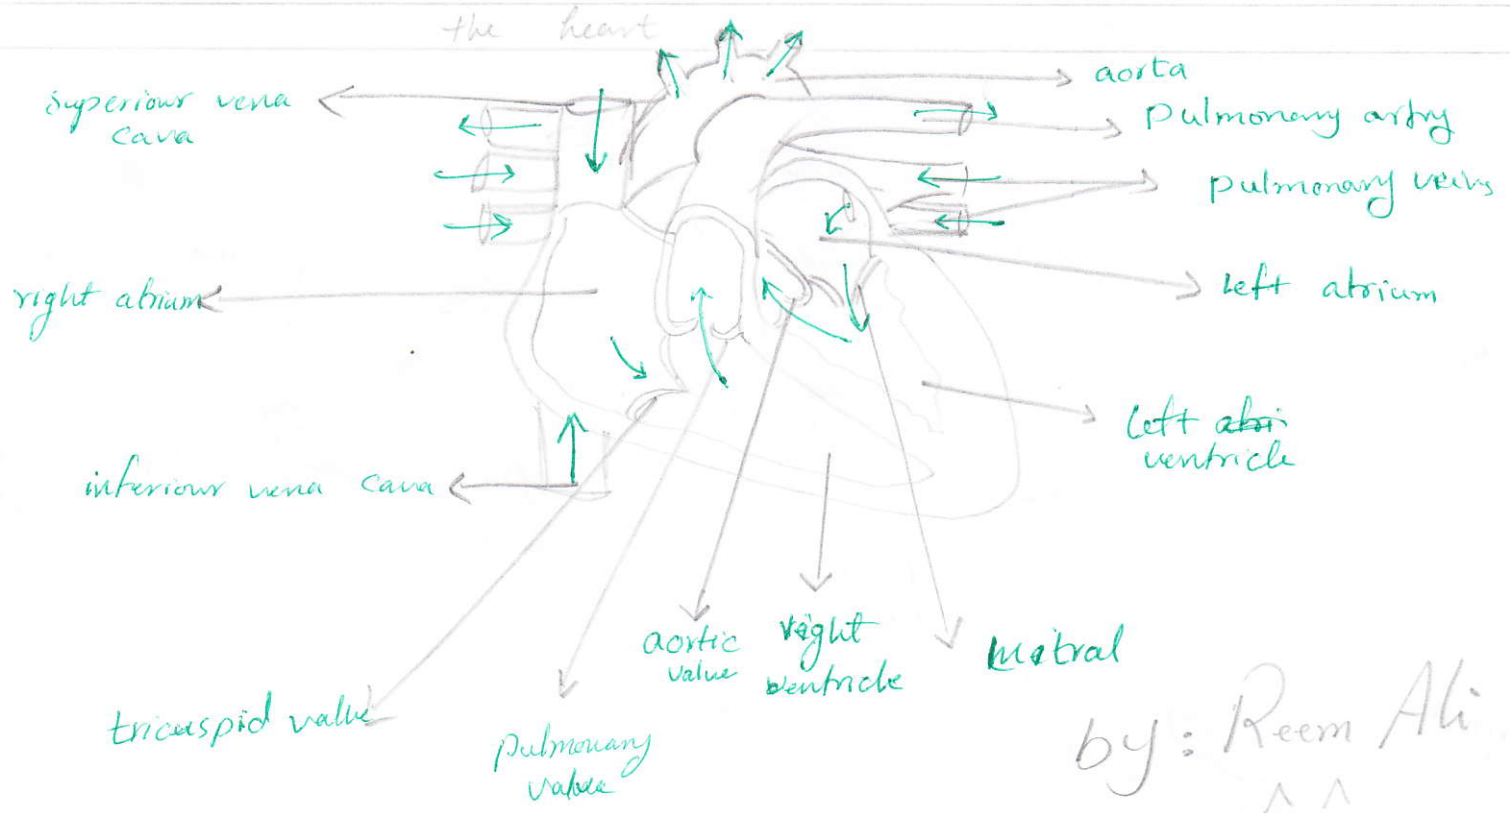 the heart
superiour vena
cava
aorta
Pulmonary artry
pulmonary veins
right atrium
left atrium
left abri
ventricle
inferiour vena cava
aortic
valve
right
ventricle
mitral
tricuspid valve
pulmonary
valve
by: Reem Ali